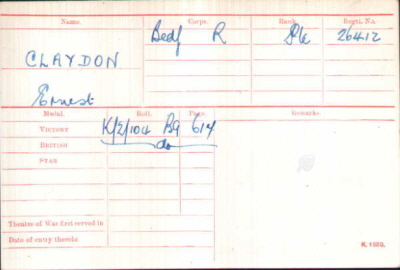 Name. Corps. Rank. Regtl. No.
Bedf R Pte 26412
CLAYDON
Ernest
Medal. Roll. Page. Remarks.
VICTORY K/2/104 B9 614
BRITISH do
STAR
Theatre of War first served in
Date of entry therein
K. 1380.